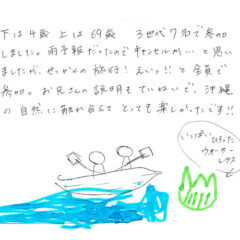 下は4歳 上は69歳　3世代7名で参加
しました。雨予報だったのでキャンセルか…と思い
ましたが、せっかくの旅行！えいっ!!と全員で
参加。お兄さんの説明もていねいで、沖縄
の自然に触れ合えて とっても楽しかったです!!
いっぱい
ひろった
ウォーター
レタス